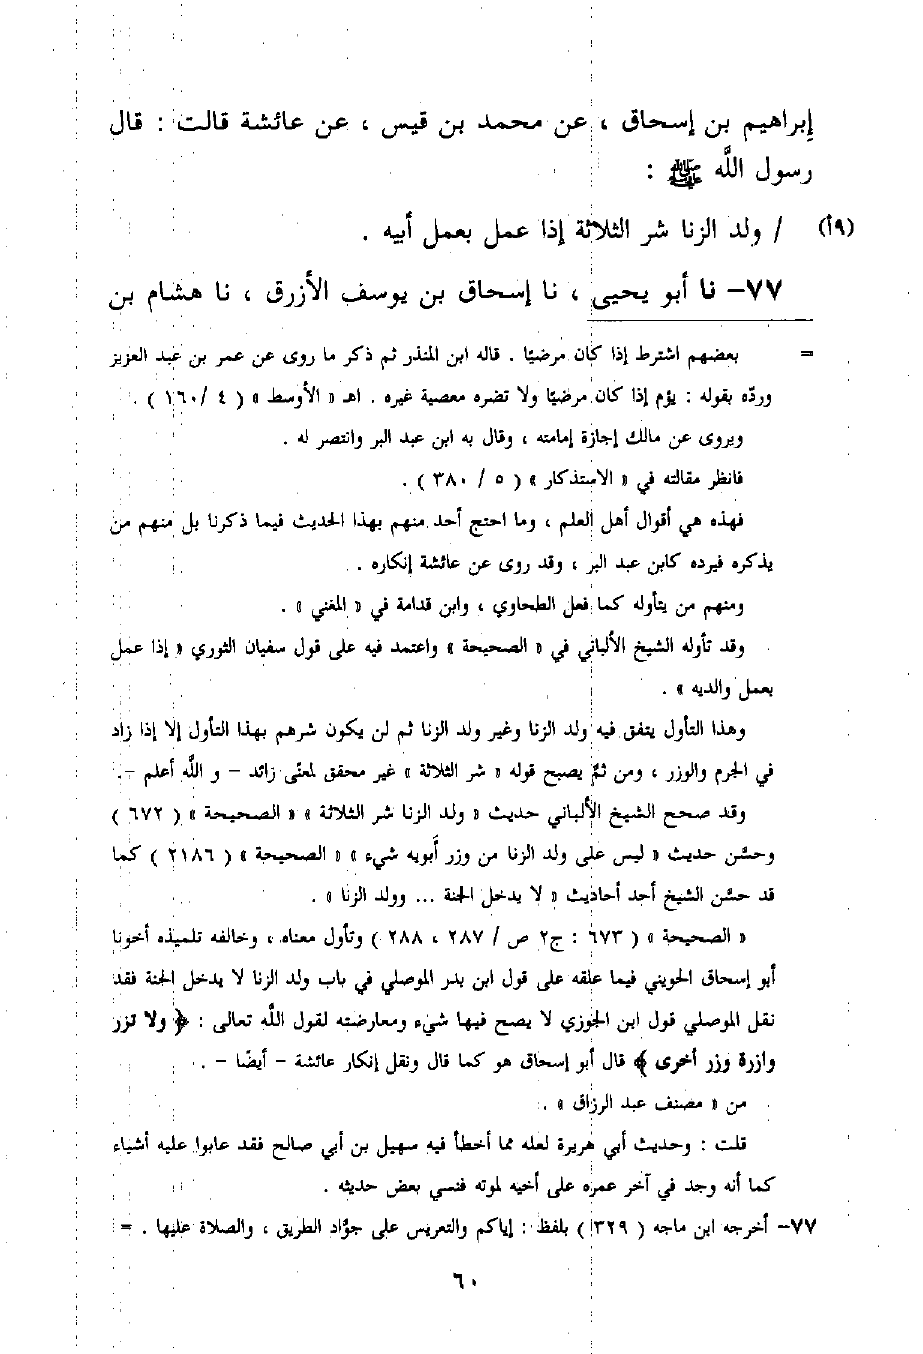 إبراهيم بن إسحاق ، عن محمد بن قيس ، عن عائشة قالت : قال
رسول اللَّه ﷺ :
(٩أ) / ولد الزنا شر الثلاثة إذا عمل بعمل أبيه .
٧٧- نا أبو يحيى ، نا إسحاق بن يوسف الأزرق ، نا هشام بن
= بعضهم اشترط إذا كان مرضيًا . قاله ابن المنذر ثم ذكر ما روى عن عمر بن عبد العزيز
وردّه بقوله : يؤم إذا كان مرضيًا ولا تضره معصية غيره . اهـ « الأوسط » ( ٤ /١٦٠ ) .
ويروى عن مالك إجازة إمامته ، وقال به ابن عبد البر وانتصر له .
فانظر مقالته في « الاستذكار » ( ٥ / ٣٨٠ ) .
فهذه هي أقوال أهل العلم ، وما احتج أحد منهم بهذا الحديث فيما ذكرنا بل منهم من
يذكره فيرده كابن عبد البر ، وقد روى عن عائشة إنكاره .
ومنهم من يتأوله كما فعل الطحاوي ، وابن قدامة في « المغني » .
وقد تأوله الشيخ الألباني في « الصحيحة » واعتمد فيه على قول سفيان الثوري « إذا عمل
بعمل والديه » .
وهذا التأول يتفق فيه ولد الزنا وغير ولد الزنا ثم لن يكون شرهم بهذا التأول إلا إذا زاد
في الجرم والوزر ، ومن ثمَّ يصبح قوله « شر الثلاثة » غير محقق لمعنًى زائد - و اللَّه أعلم -.
وقد صحح الشيخ الألباني حديث « ولد الزنا شر الثلاثة » « الصحيحة » ( ٦٧٢ )
وحسَّن حديث « ليس على ولد الزنا من وزر أبويه شيء » « الصحيحة » ( ٢١٨٦ ) كما
قد حسَّن الشيخ أحد أحاديث « لا يدخل الجنة ... وولد الزنا » .
« الصحيحة » ( ٦٧٣ : ج٢ ص / ٢٨٧ ، ٢٨٨ ) وتأول معناه ، وخالفه تلميذه أخونا
أبو إسحاق الحويني فيما علقه على قول ابن بدر الموصلي في باب ولد الزنا لا يدخل الجنة فقد
نقل الموصلي قول ابن الجوزي لا يصح فيها شيء ومعارضته لقول اللَّه تعالى : ﴿ ولا تزر
وازرة وزر أخرى ﴾ قال أبو إسحاق هو كما قال ونقل إنكار عائشة - أيضًا - .
من « مصنف عبد الرزاق » .
قلت : وحديث أبي هريرة لعله مما أخطأ فيه سهيل بن أبي صالح فقد عابوا عليه أشياء
كما أنه وجد في آخر عمره على أخيه لموته فنسي بعض حديثه .
٧٧- أخرجه ابن ماجه ( ٣٢٩ ) بلفظ : إياكم والتعريس على جوَّاد الطريق ، والصلاة عليها . =
٦٠